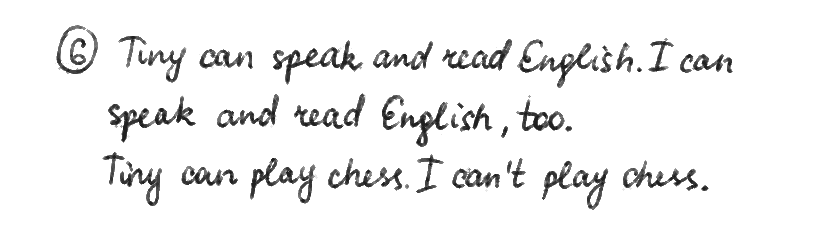 ⑥ Tiny can speak and read English. I can
speak and read English, too.
Tiny can play chess. I can't play chess.